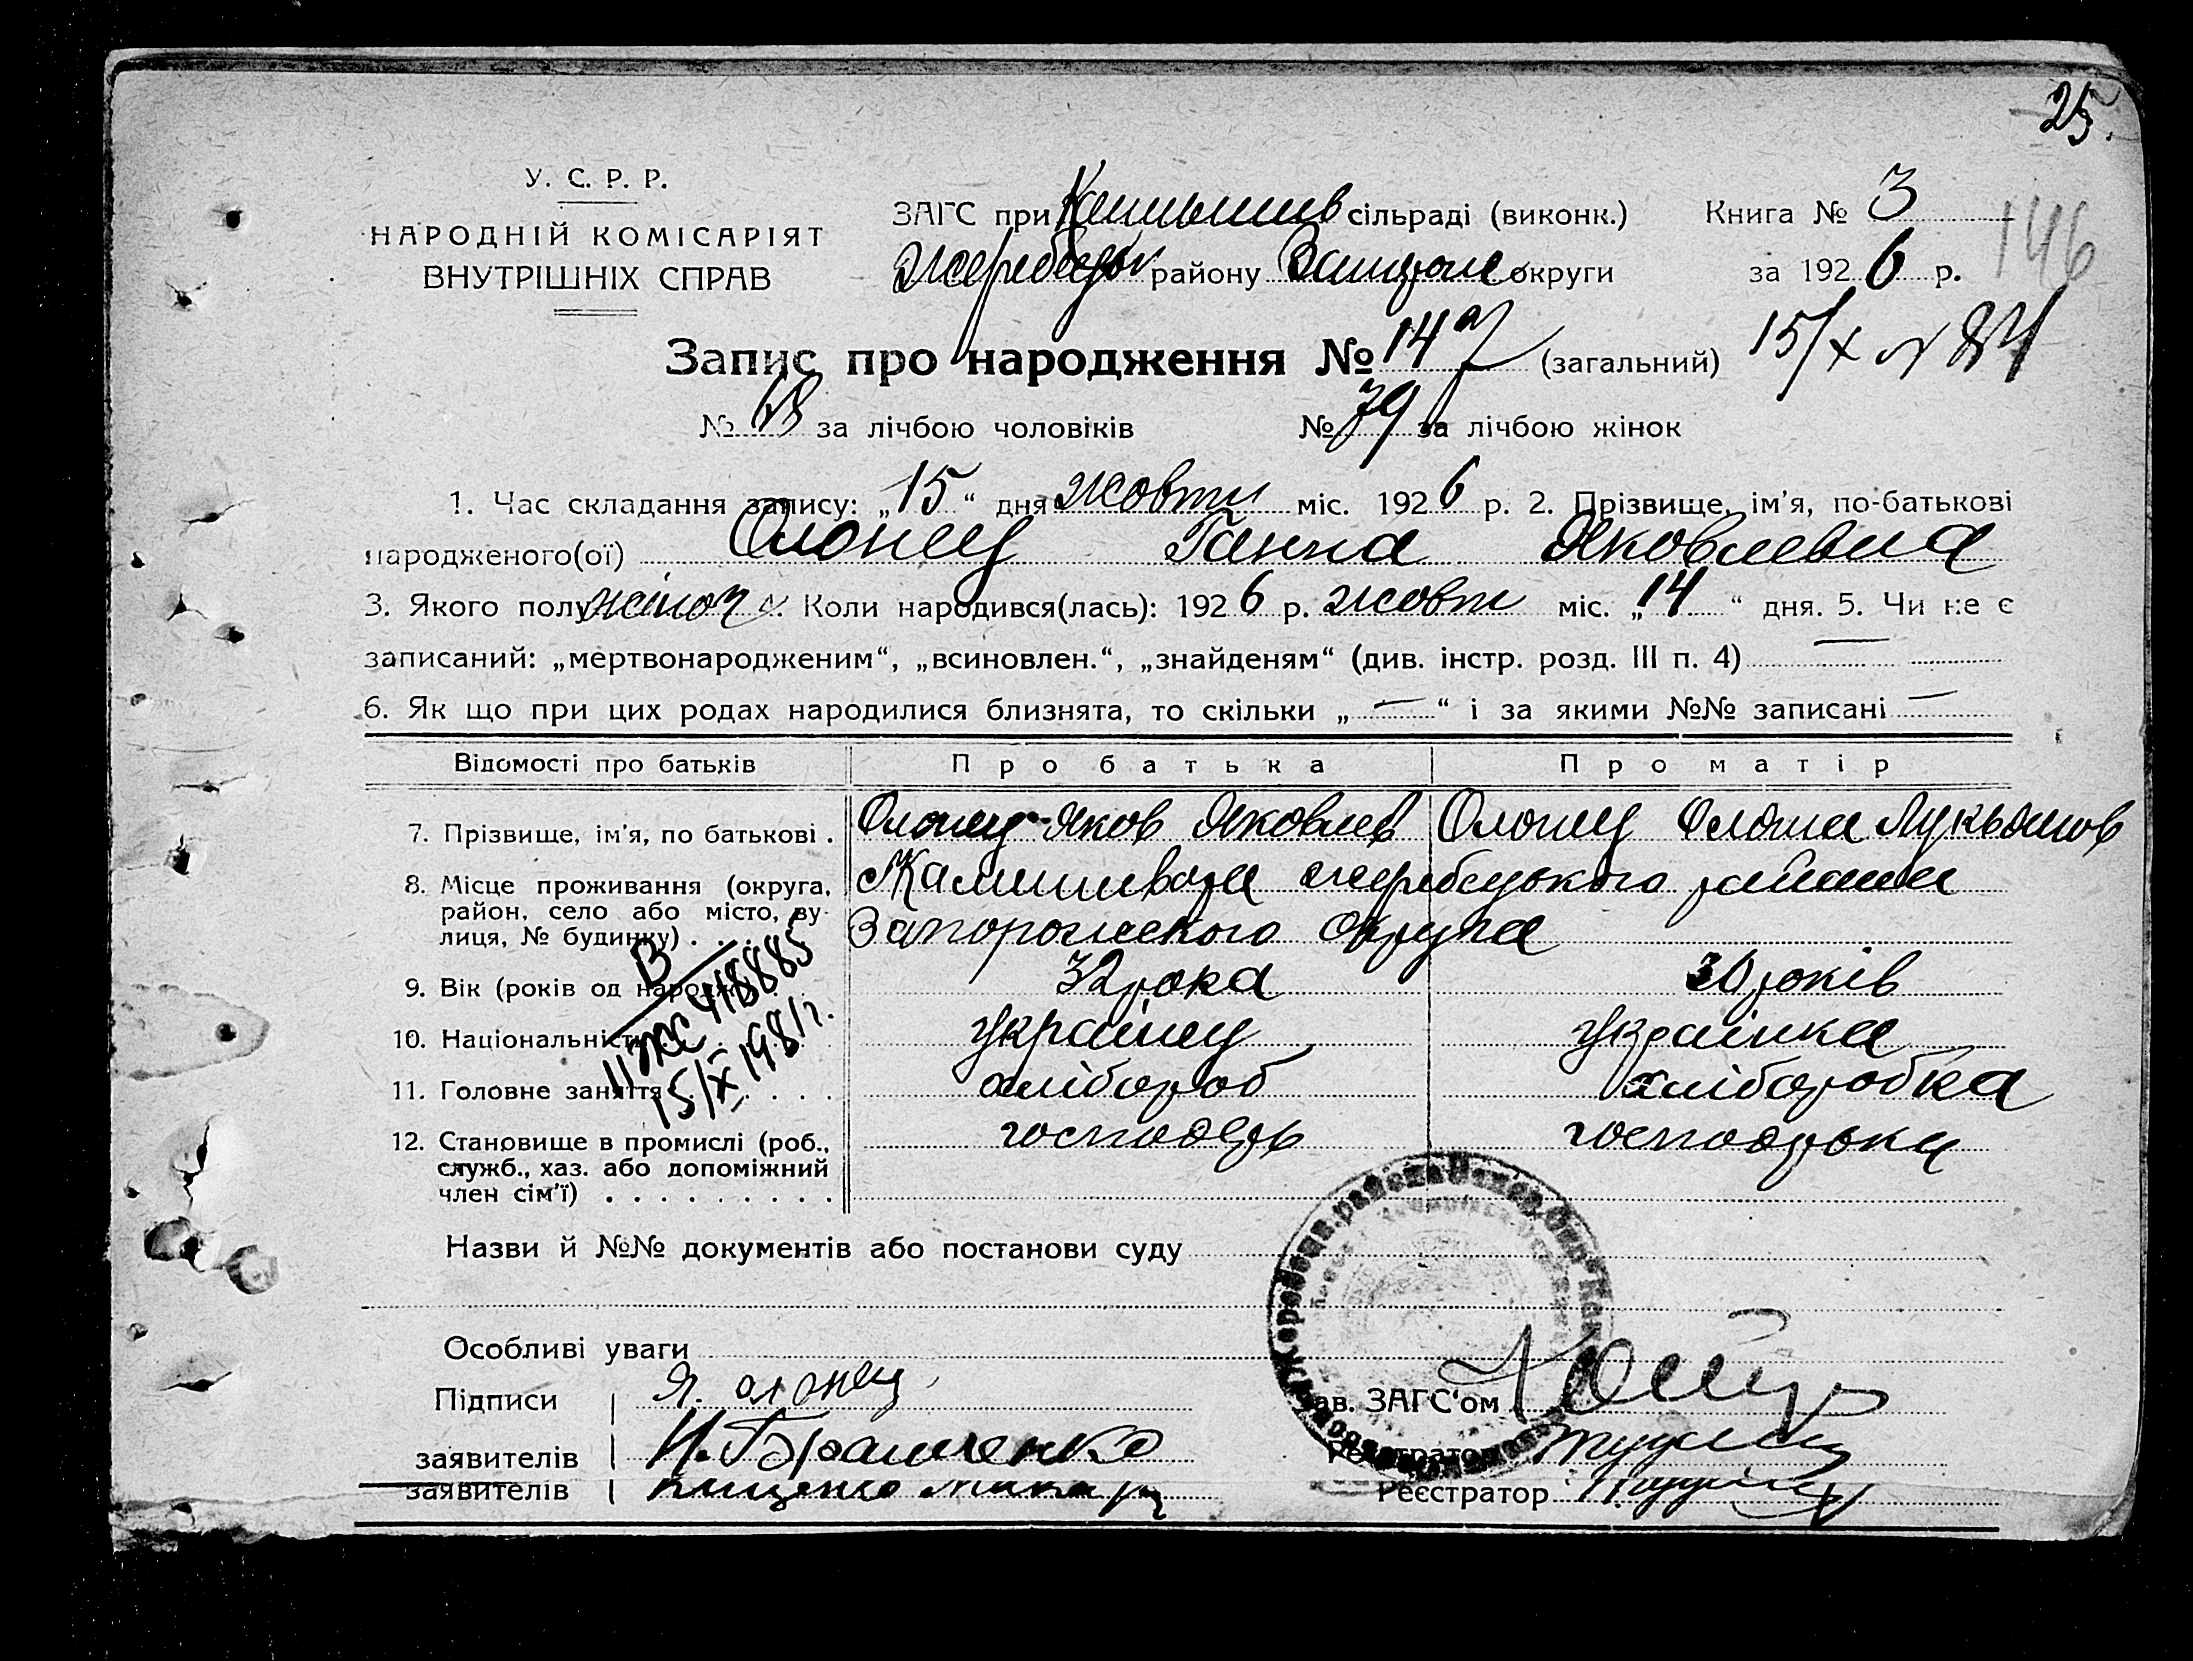 25.
У. С. Р. Р.
НАРОДНІЙ КОМІСАРІЯТ
ВНУТРІШНІХ СПРАВ
ЗАГС при сільраді (виконк.) Книга № 3
району округи за 1926 р.
146
Запис про народження № 147 (загальний) 15/X N
№ 68 за лічбою чоловіків № 79 за лічбою жінок
1. Час складання запису: „15“ дня жовтн міс. 1926 р. 2. Прізвище, ім'я, по-батькові
народженого(ої) Олонец Ганна Яковлевна
3. Якого полу жіноч 4. Коли народився(лась): 1926 р. жовтн міс. „14“ дня. 5. Чи не є
записаний: „мертвонародженим“, „всиновлен.“, „знайденям“ (див. інстр. розд. III п. 4) —
6. Як що при цих родах народилися близнята, то скільки „—“ і за якими №№ записані —
Відомості про батьків Про батька Про матір
7. Прізвище, ім'я, по батькові . Олонец Яков Яковлев Олонец Лукьянов
8. Місце проживання (округа, район, село або місто, вулиця, № будинку) . . . района
Запорожского округа
9. Вік (років од народж. 32 рока 30 років
10. Національність українец українка
11. Головне заняття хлібороб хліборобка
12. Становище в промислі (роб., служб., хаз. або допоміжний член сім'ї) . . . . . . . . . господарь
В
II ЖС 418885
15/X 1981г.
Назви й №№ документів або постанови суду
Особливі уваги
Підписи Я. олонец
Зав. ЗАГС'ом
заявителів
Реєстратор
заявителів
Реєстратор